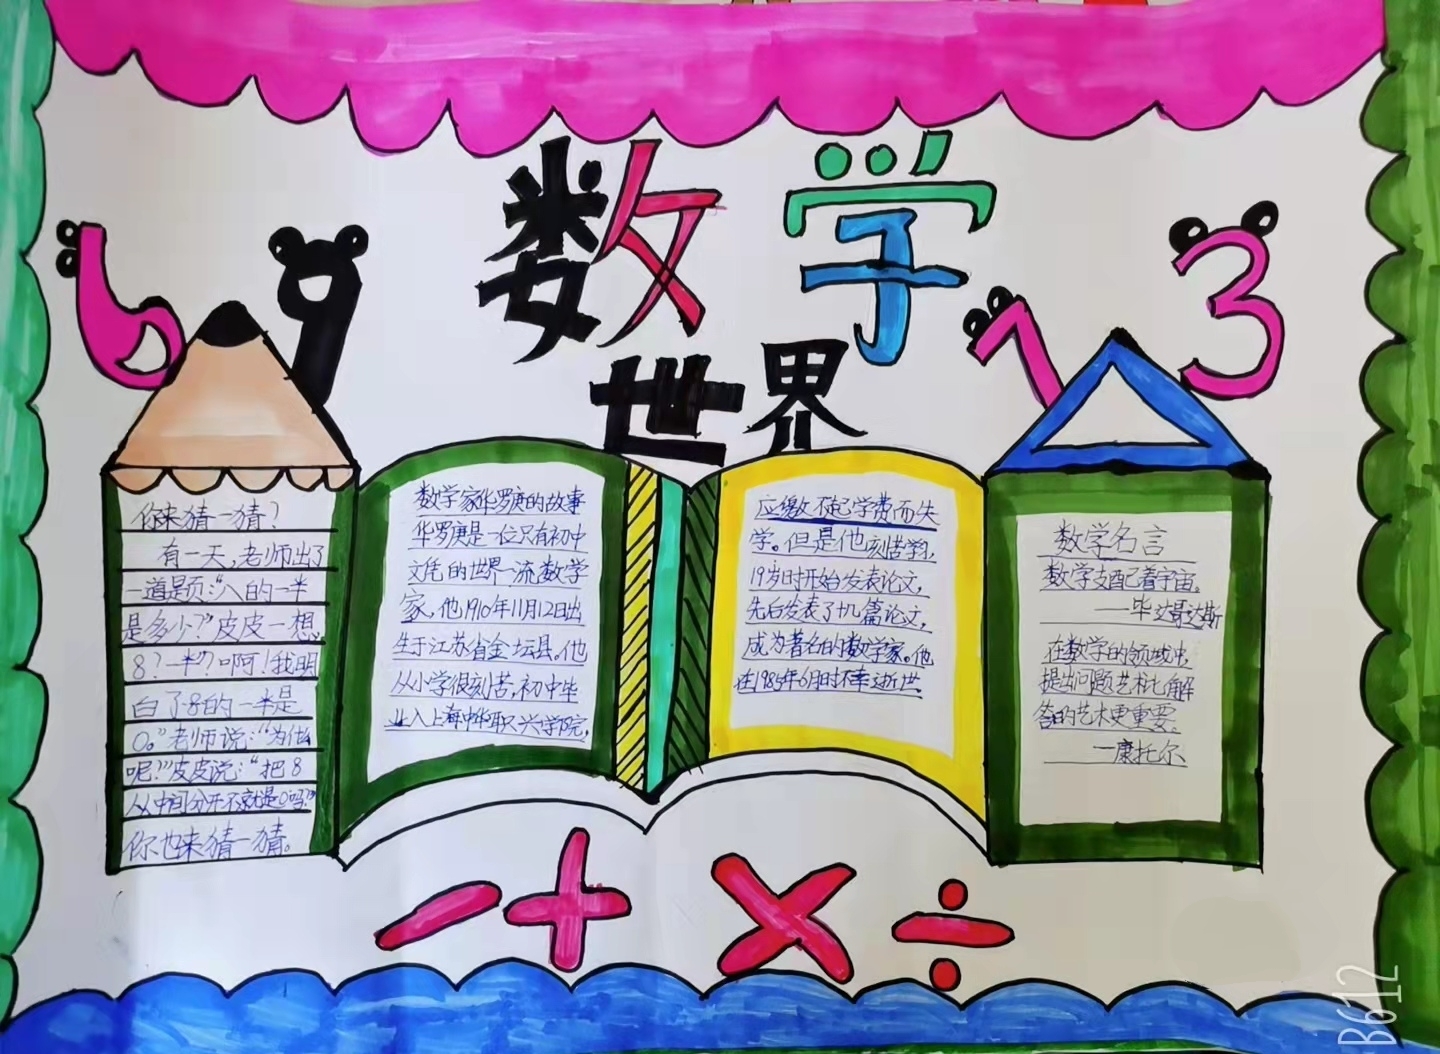 数学
世界
6 9 7 3
你来猜一猜?
有一天,老师出了
一道题:“八的一半
是多少?”皮皮一想,
8?一半?啊!我明
白了8的一半是
0。”老师说:“为什么
呢?”皮皮说:“把8
从中间分开不就是0吗?”
你也来猜一猜。
数学家华罗庚的故事
华罗庚是一位只有初中
文凭的世界一流数学
家,他1910年11月12日出
生于江苏省金坛县。他
从小学很刻苦,初中毕
业入上海中华职兴学院,
应缴不起学费而失
学。但是他刻苦学,
19岁时开始发表论文,
先后发表了九篇论文,
成为著名的数学家。他
在1985年6月时不幸逝世
数学名言
数学支配着宇宙。
——毕达哥达斯
在数学的领域中,
提出问题艺术比解
答的艺术更重要。
—康托尔
- + × ÷
B612